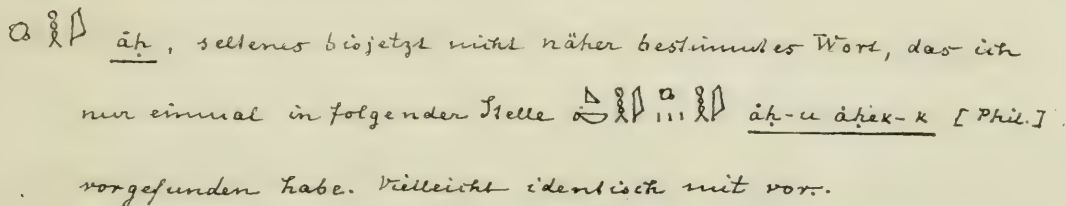 âḥ, seltenes bisjetzt nicht näher bestimmtes Wort, das ich
nur einmal in folgender Stelle âḥ-u âḥek-k [Phil.]
vorgefunden habe. Vielleicht identisch mit vor.